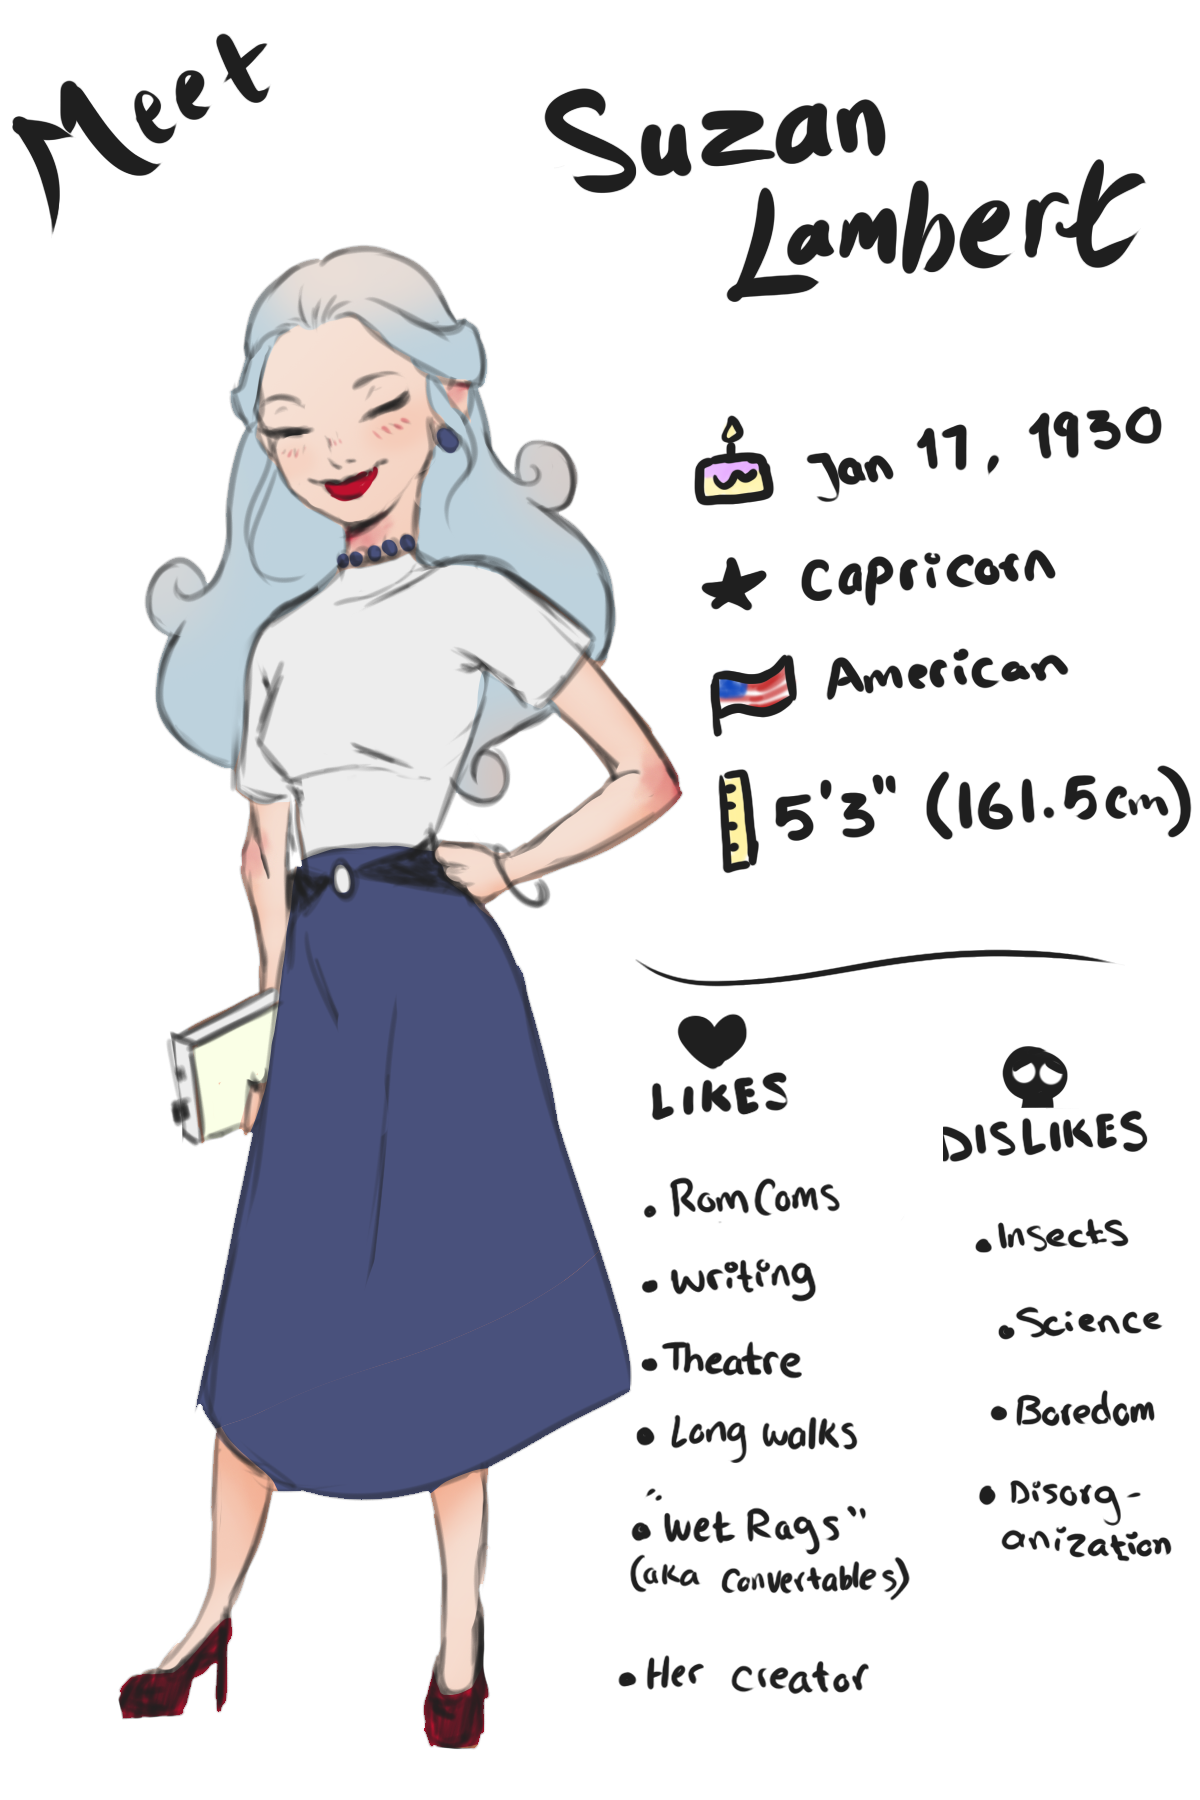 Meet
Suzan
Lambert
Jan 17, 1930
Capricorn
American
5'3" (161.5cm)
LIKES
• RomComs
• Writing
• Theatre
• Long walks
• "Wet Rags"
(aka Convertables)
• Her creator
DISLIKES
• Insects
• Science
• Boredom
• Disorg-
anization